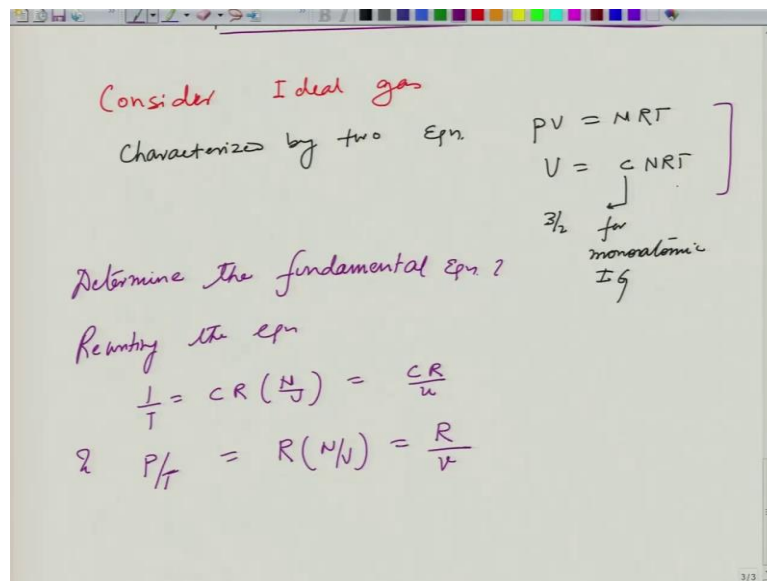 Consider Ideal gas
Characterized by two Eqn.
PV = NRT
U = c NRT
3/2 for
monoatomic
IG
Determine the fundamental Eqn. ?
Rewriting the eqn
1/T = CR (N/U) = CR/u
& P/T = R (N/V) = R/v
3/3